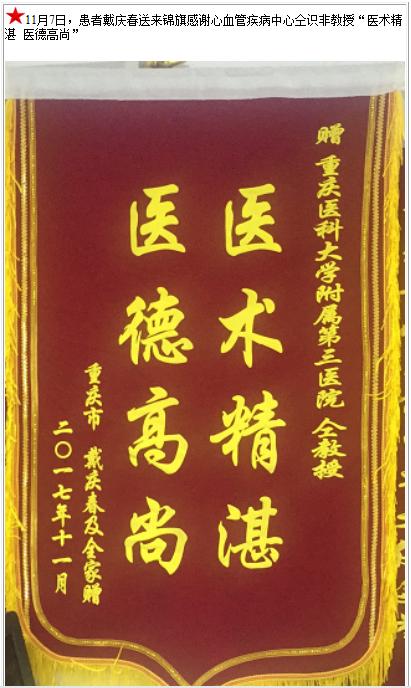 ★11月7日，患者戴庆春送来锦旗感谢心血管疾病中心仝识非教授“医术精
湛 医德高尚”
赠 重庆医科大学附属第三医院 仝教授
医术精湛
医德高尚
重庆市 戴庆春及全家赠
二〇一七年十一月